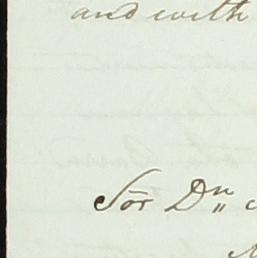 and with
Sōr Dⁿ